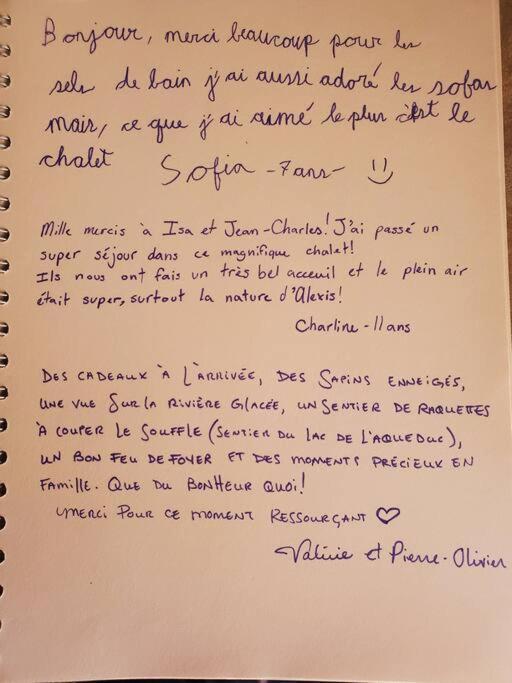 Bonjour, merci beaucoup pour les
sels de bain j'ai aussi adoré les sofas
mais, ce que j'ai aimé le plus c'est le
chalet Sofia -7ans-
Mille mercis à Isa et Jean-Charles! J'ai passé un
super séjour dans ce magnifique chalet!
Ils nous ont fais un très bel acceuil et le plein air
était super, surtout la nature d'Alexis!
Charline-11ans
DES CADEAUX À L'ARRIVÉE, DES SAPINS ENNEIGÉS,
UNE VUE SUR LA RIVIÈRE GLACÉE, UN SENTIER DE RAQUETTES
À COUPER LE SOUFFLE (SENTIER DU LAC DE L'AQUEDUC),
UN BON FEU DE FOYER ET DES MOMENTS PRÉCIEUX EN
FAMILLE. QUE DU BONHEUR QUOI!
MERCI POUR CE MOMENT RESSOURÇANT ♡
Valérie et Pierre-Olivier